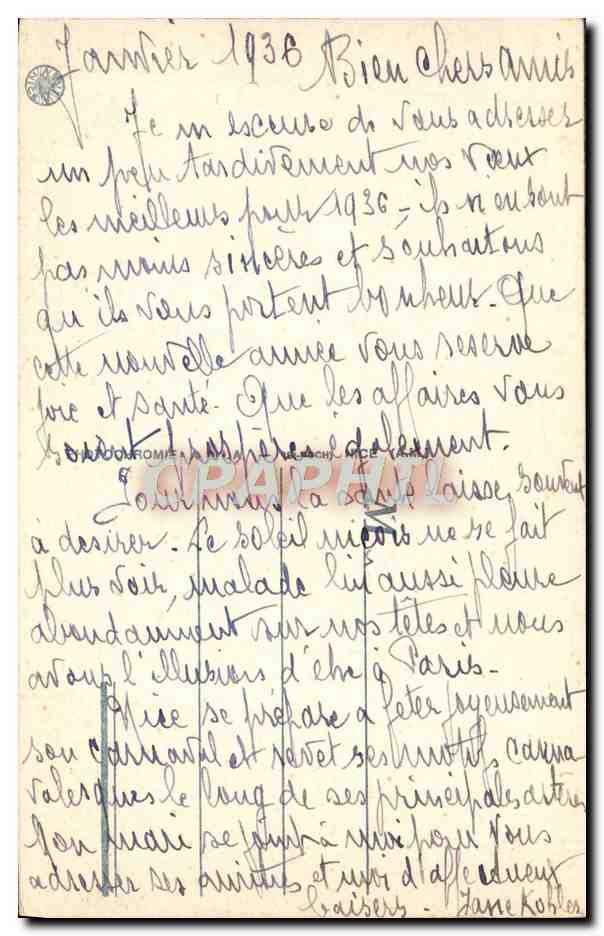 Janvier 1936 Bien chers amis
Je m'excuse de vous adresser
un peu tardivement nos vœux
les meilleurs pour 1936 - ils n'en sont
pas moins sincères et souhaitons
qu'ils vous portent bonheur. Que
cette nouvelle année vous réserve
joie et santé. Que les affaires vous
soient prospères également.
CPARAMA
NICE
Pour nous la santé laisse souvent
à désirer. Le soleil niçois ne se fait
plus voir, malade lui aussi pleure
abondamment sur nos têtes et nous
avons l'illusion d'être à Paris -
Nice se prépare à fêter joyeusement
son carnaval et revêt ses motifs carna
valesques le long de ses principales artères
Mon mari se joint à moi pour vous
adresser ses amitiés et moi d'affectueux
baisers -